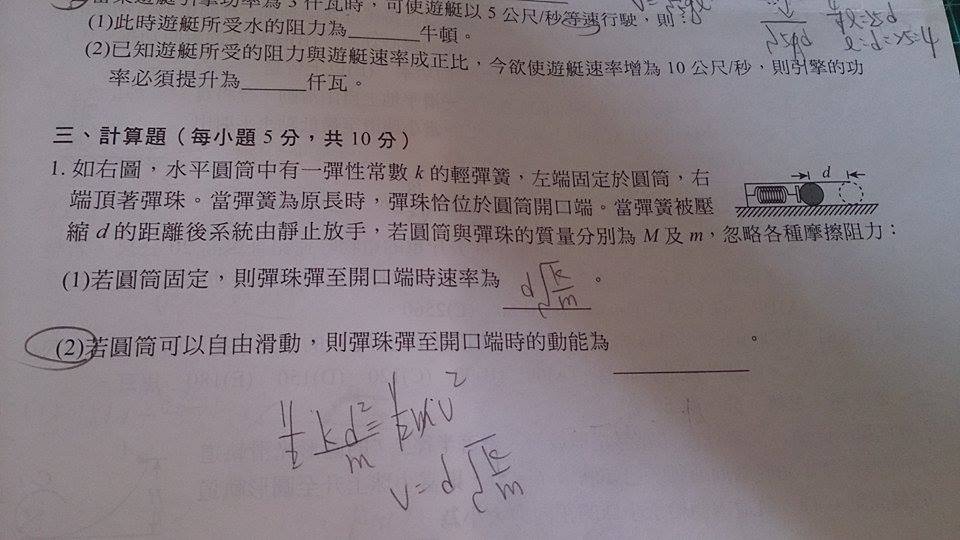 當某遊艇引擎功率為 3 仟瓦時，可使遊艇以 5 公尺/秒等速行駛，則：
(1)此時遊艇所受水的阻力為______牛頓。
(2)已知遊艇所受的阻力與遊艇速率成正比，今欲使遊艇速率增為 10 公尺/秒，則引擎的功
率必須提升為______仟瓦。
三、計算題（每小題 5 分，共 10 分）
1. 如右圖，水平圓筒中有一彈性常數 k 的輕彈簧，左端固定於圓筒，右
端頂著彈珠。當彈簧為原長時，彈珠恰位於圓筒開口端。當彈簧被壓
縮 d 的距離後系統由靜止放手，若圓筒與彈珠的質量分別為 M 及 m，忽略各種摩擦阻力：
d
(1)若圓筒固定，則彈珠彈至開口端時速率為 d√(k/m) 。
(2)若圓筒可以自由滑動，則彈珠彈至開口端時的動能為______。
1/2 kd²/m = 1/2 mv²
v = d√(k/m)